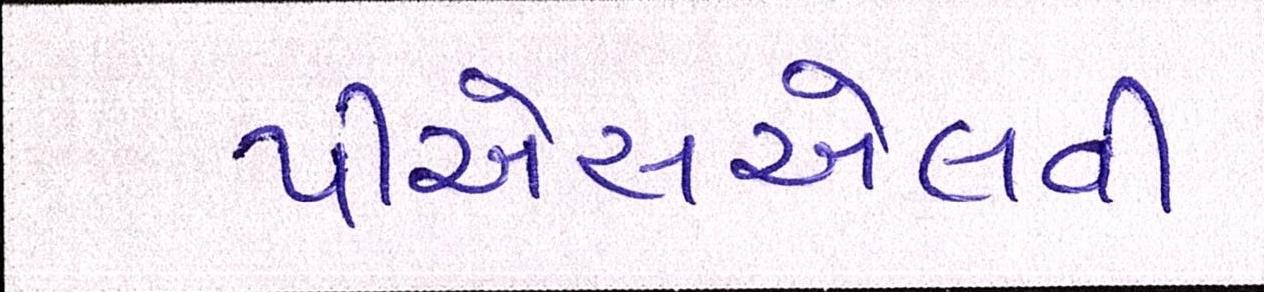 પીએસએલવી